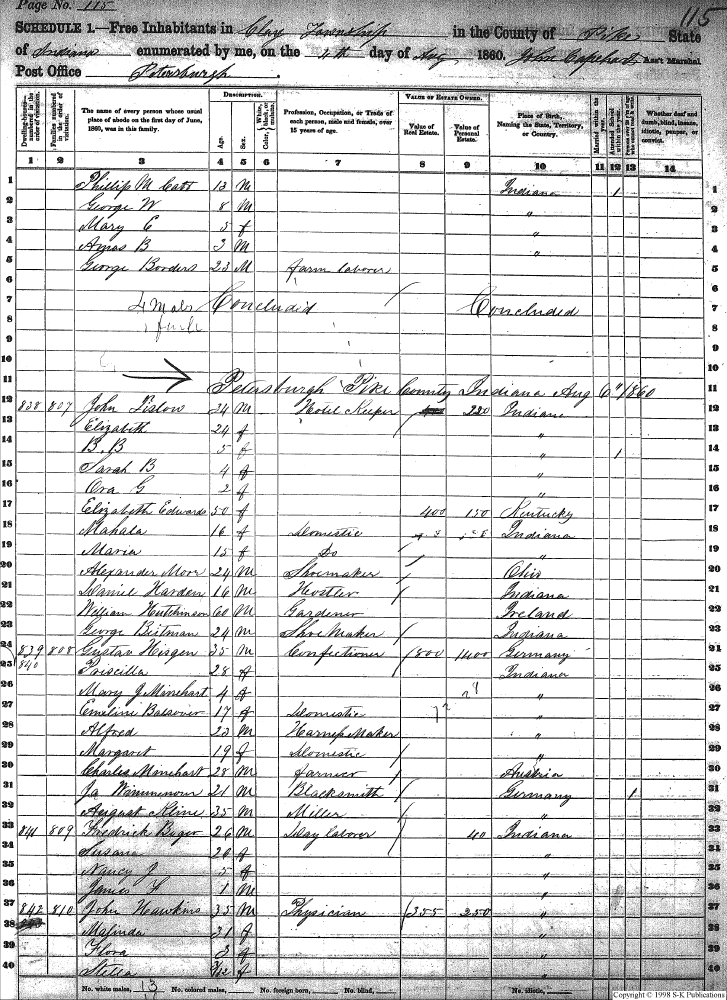 Page No. 115
115
SCHEDULE 1.—Free Inhabitants in Clay Township in the County of Pike State
of Indiana enumerated by me, on the 4th day of Aug 1860. John Capehart Ass't Marshal
Post Office Petersburgh
Dwelling-houses—numbered in the order of visitation.
Families numbered in the order of visitation.
The name of every person whose usual place of abode on the first day of June, 1860, was in this family.
DESCRIPTION.
Age.
Sex.
Color, White, black, or mulatto.
Profession, Occupation, or Trade of each person, male and female, over 15 years of age.
VALUE OF ESTATE OWNED.
Value of Real Estate.
Value of Personal Estate.
Place of Birth, Naming the State, Territory, or Country.
Married within the year.
Attended School within the year.
Whether deaf and dumb, blind, insane, idiotic, pauper, or convict.
1 2 3 4 5 6 7 8 9 10 11 12 13 14
1 Phillip M Catt 13 M Indiana 1
2 George W 8 M "
3 Mary C 5 f "
4 Amas B 3 M "
5 George Borders 23 M farm laborer
7 4 Mals Concluded Concluded
11 Petersburgh Pike County Indiana Aug 6" 1860
12 838 807 John 24 M Hotel Keeper 220 Indiana
13 Elizabeth 24 f "
14 B. B 5 f " 1
15 Sarah B 4 f "
16 Ora G 2 f "
17 Elizabeth Edwards 50 f 400 150 Kentucky
18 Mahala 16 f Domestic Indiana
19 Maria 15 f Do "
20 Alexander Moor 24 M Shoemaker Ohio
21 Daniel Harden 16 M Hostler Indiana
22 William Hutchinson 60 M Gardener Ireland
23 George Bittman 24 M Shoe Maker Indiana
24 839 808 Gustav Hisgen 35 M Confectioner 800 1400 Germany
25 840 Priscilla 28 f Indiana
26 Mary J Minehart 4 f "
27 Emeline 17 f Domestic "
28 Alfred 23 M Harness Maker "
29 Margaret 19 f Domestic "
30 Charles Minehart 28 M farmer Austria
31 Ja 21 M Blacksmith Germany 1
32 August Kline 35 M Miller "
33 841 809 Fredrick 26 M Day laborer 40 Indiana
34 Susana 20 f "
35 Nancy J 5 f "
36 James 1 M
37 842 810 John Hawkins 35 M Physician 355 250 "
38 Malinda 31 f "
39 Flora 3 f "
40 Stella /12 f "
No. white males, 13 No. colored males, No. foreign born, No. blind, No. idiotic,
Copyright © 1998 S-K Publications